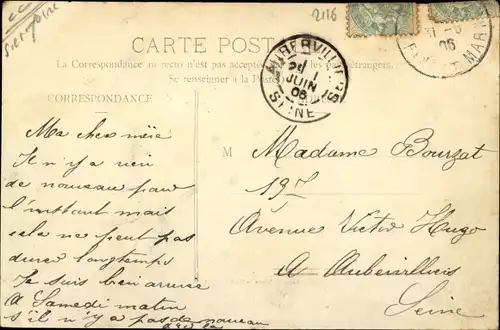 2116
CARTE POSTALE
La Correspondance au recto n'est pas acceptée par tous les pays étrangers.
Se renseigner à la Poste
CORRESPONDANCE
AUBERVILLIERS
1
JUIN
06
SEINE
06
MARNE
Ma cher mère
Il n'y a rien
de nouveau pour
l'instant mais
cela ne peut pas
durer longtemps
Je suis bien arrivée
A Samedi matin
s'il n'y a pas de nouveau
M Madame Bourzat
197
Avenue Victor Hugo
A Aubervilliers
Seine